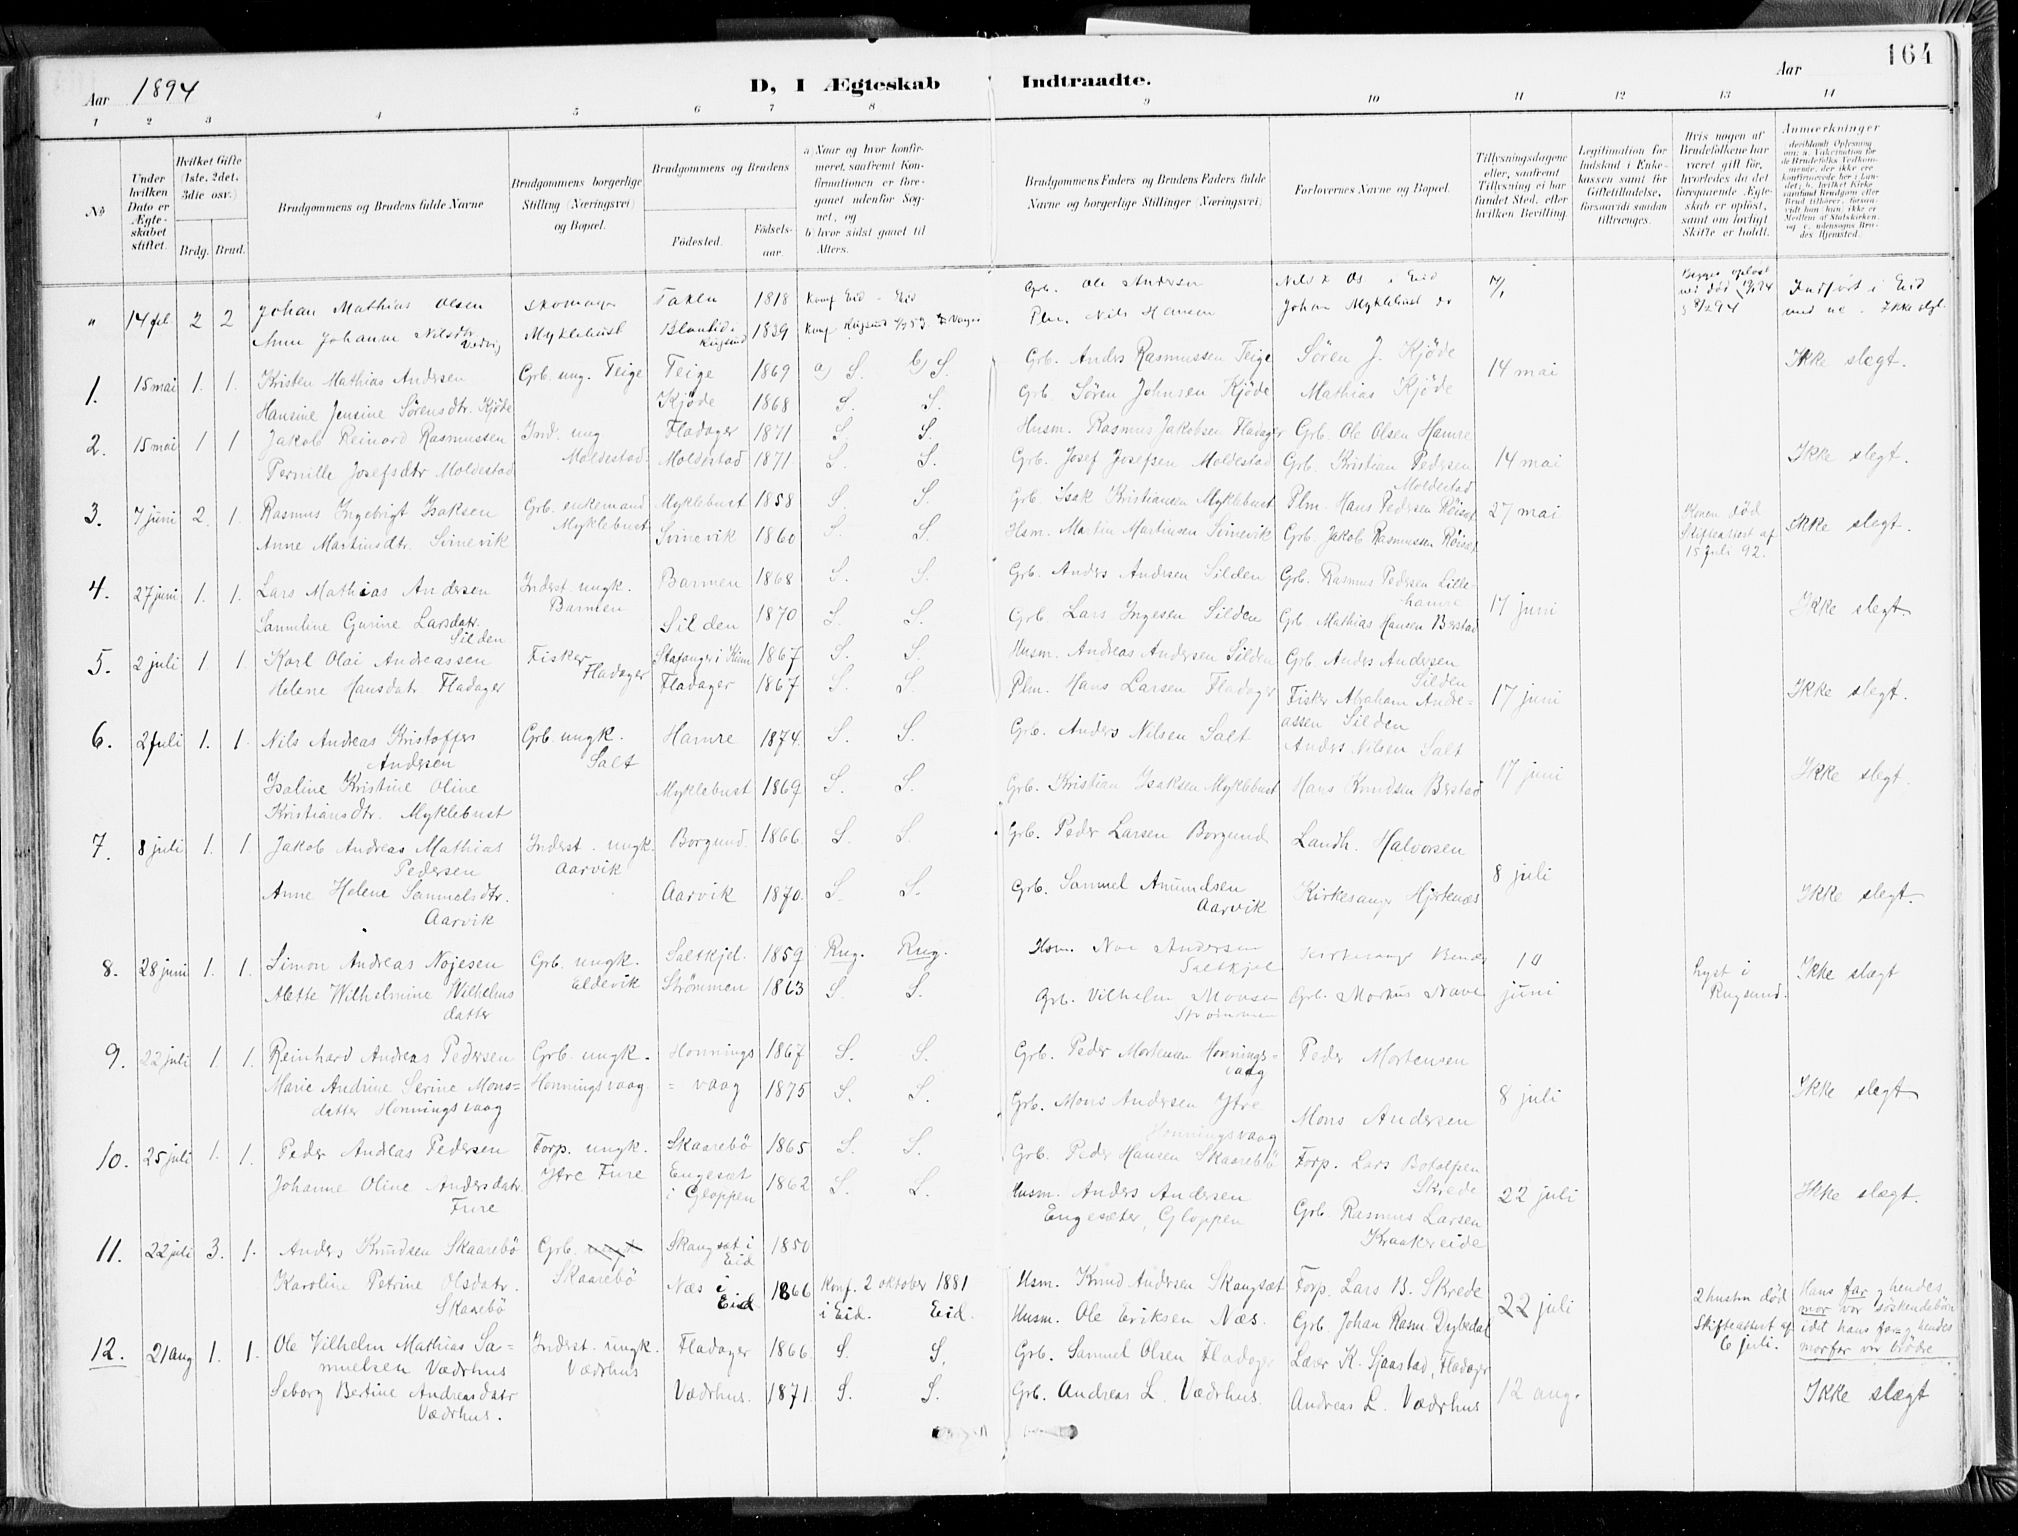 164
Aar 1894 D, I Ægteskab Indtraadte. Aar
1 2 3 4 5 6 7 8 9 10 11 12 13 14
No
Under hvilken Dato er Ægteskabet stiftet.
Hvilket Gifte (1ste, 2det, 3die osv.)
Brdg. Brud.
Brudgommens og Brudens fulde Navne
Brudgommens borgerlige Stilling (Næringsvei) og Bopæl.
Brudgommens og Brudens
Fødested. Fødselsaar.
a) Naar og hvor konfirmeret, saafremt Konfirmationen er foregaaet udenfor Sognet, og
b) hvor sidst gaaet til Alters.
Brudgommens Faders og Brudens Faders fulde Navne og borgerlige Stillinger (Næringsvei)
Forlovernes Navne og Bopæl.
Tillysningsdagene eller, saafremt Tillysning ei har fundet Sted, efter hvilken Bevilling.
Legitimation for Indskud i Enkekassen samt for Giftetilladelse, forsaavidt saadan tiltrænges.
Hvis nogen af Brudefolkene har været gift før, hvorledes da det foregaaende Ægteskab er opløst, samt om lovligt Skifte er holdt.
Anmærkninger
" 14 feb. 2 2 Johan Mathias Olsen Skomager Taklo 1818 konf Eid - Eid Grb. Ole Andersen Nils Os i Eid Indført i Eid
Anne Johanne Nilsdtr. Myklebust 1839 Plm. Nils Hansen Johan Myklebust Ikke slegt
1. 15 mai 1. 1. Kristen Mathias Andersen Grb. ung. Teige Teige 1869 a) S. b) S. Grb. Anders Rasmussen Teige Søren J. Kjøde 14 mai Ikke slegt.
Hansine Jensine Sørensdtr. Kjøde Kjøde 1868 S. S. Grb. Søren Johnsen Kjøde Mathias Kjøde
2. 15 mai 1 1 Jakob Reinord Rasmussen Ind. ung Moldestad. Fladager 1871 S. S. Husm. Rasmus Jakobsen Fladager Grb. Ole Olsen Hamre 14 mai Ikke slegt.
Pernille Josefsdtr Moldestad Moldestad 1871 S. S. Grb. Josef Josefsen Moldestad Grb. Kristian Pedersen Moldestad
3. 7 juni 2. 1. Rasmus Ingebrigt Isaksen Grb. enkemand Myklebust Myklebust 1858 S. S. Grb. Isak Kristiansen Myklebust Plm. Hans Pedersen Røiset 27 mai Konen død Skifteattest af 15 juli 92. Ikke slegt.
Anne Martinsdtr. Svinevik Svinevik 1860 S. S. Hsm. Martin Martinsen Svinevik Grb. Jakob Rasmussen Røiset
4. 27 juni 1. 1. Lars Mathias Andersen Inderst. ungk. Barmen Barmen 1868 S. S. Grb. Anders Andersen Silden Grb. Rasmus Pedersen Lillehamre 17 juni Ikke slegt
Samuline Gurine Larsdatr. Silden Silden 1870 S. S. Grb. Lars Ingesen Silden Grb. Mathias Hansen Berstad
5. 2 juli 1 1. Karl Olai Andreassen Fisker Fladager Stafanger i Kinn 1867 S. S. Husm. Andreas Andersen Silden Grb. Anders Andersen Silden 17 juni Ikke slegt.
Helene Hansdatr. Fladager Fladager 1867 S. S. Plm. Hans Larsen Fladager Fisker Abraham Andreassen Silden
6. 2 juli 1. 1. Nils Andreas Kristoffer Andersen Grb. ungk. Salt Hamre 1874. S. S. Grb. Anders Nilsen Salt Anders Nilsen Salt 17 juni Ikke slegt.
Isaline Kristine Oline Kristiansdtr. Myklebust Myklebust 1869 S. S. Grb. Kristian Isaksen Myklebust Hans Knudsen Berstad
7. 8 juli 1. 1 Jakob Andreas Mathias Pedersen Inderst. ungk. Aarvik Borgund. 1866 S. S. Grb. Peder Larsen Borgund Landh. Halvorsen 8 juli Ikke slegt.
Anne Helene Samuelsdtr. Aarvik Aarvik 1870. S. S. Grb. Samuel Amundsen Aarvik Kirkesanger Hjertenæs
8. 28 juni 1. 1. Simon Andreas Nojesen Grb. ungk. Eldevik Saltkjel. 1859 Rug. Rug. Hsm. Noe Andersen Saltkjel 10 juni Lyst i Rugsund. Ikke slægt
Alette Wilhelmine Wilhelms datter Strømmen 1863 S. S. Grb. Vilhelm Monsen Strømmen Grb. Markus Nave
9. 22 juli 1. 1. Reinhard Andreas Pedersen Grb. ungk. Honningsvaag. Honnings 1867 S. S. Grb. Peder Mortensen Honningsvaag Peder Mortensen 8 juli Ikke slegt
Marie Andrine Serine Monsdatter Honningsvaag = vaag 1875 S. S. Grb. Mons Andersen Ytre Honningsvaag Mons Andersen
10. 25 juli 1. 1. Peder Andreas Pedersen Forp. ungk. Ytre Fure Skaarebø 1865 S. S. Grb. Peder Hansen Skaarebø Forp. Lars Botolfsen Skrede 22 juli Ikke slægt.
Johanne Oline Andersdatr. Fure Engeset i Gloppen 1862 S. S. Husm. Anders Andersen Engesæter, Gloppen Grb. Rasmus Larsen Kraakereide
11. 22 juli 3. 1. Anders Knudsen Skaarebø Grb. ungk Skaarebø Skangsæt i Eid 1850 Husm. Knud Andersen Skangsæt Forp. Lars B. Skrede 22 juli 2 hustru død Skifteattest af 6 juli. Hans far og hendes mor var søskendebørn idet hans far og hendes morfar var brødre
Karoline Petrine Olsdatr. Skaarebø Næs i Eid 1866 Konf. 2 oktober 1881 i Eid. Eid. Husm. Ole Eriksen Næs. Grb. Johan Rasm. Dybedal
12. 21 aug 1. 1. Ole Vilhelm Mathias Samuelsen Vædrhus Inderst. ungk. Vædrhus Fladager 1866. S. S. Grb. Samuel Olsen Fladager Lærer K. Sjaastad, Fladager 12 aug. Ikke slægt
Seborg Bertine Andreasdatr Vædrhus. Vædrhus. 1871. S. S. Grb. Andreas L. Vædrhus. Andreas L. Vædrhus